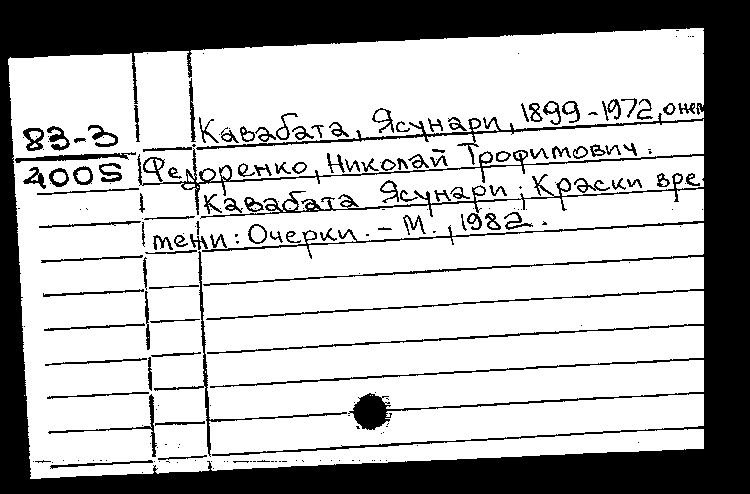 83-3
4005
Кавабата, Ясунари, 1899-1972, о нем
Федоренко, Николай Трофимович.
Кавабата Ясунари; Краски вре-
мени: Очерки. - М., 1982.